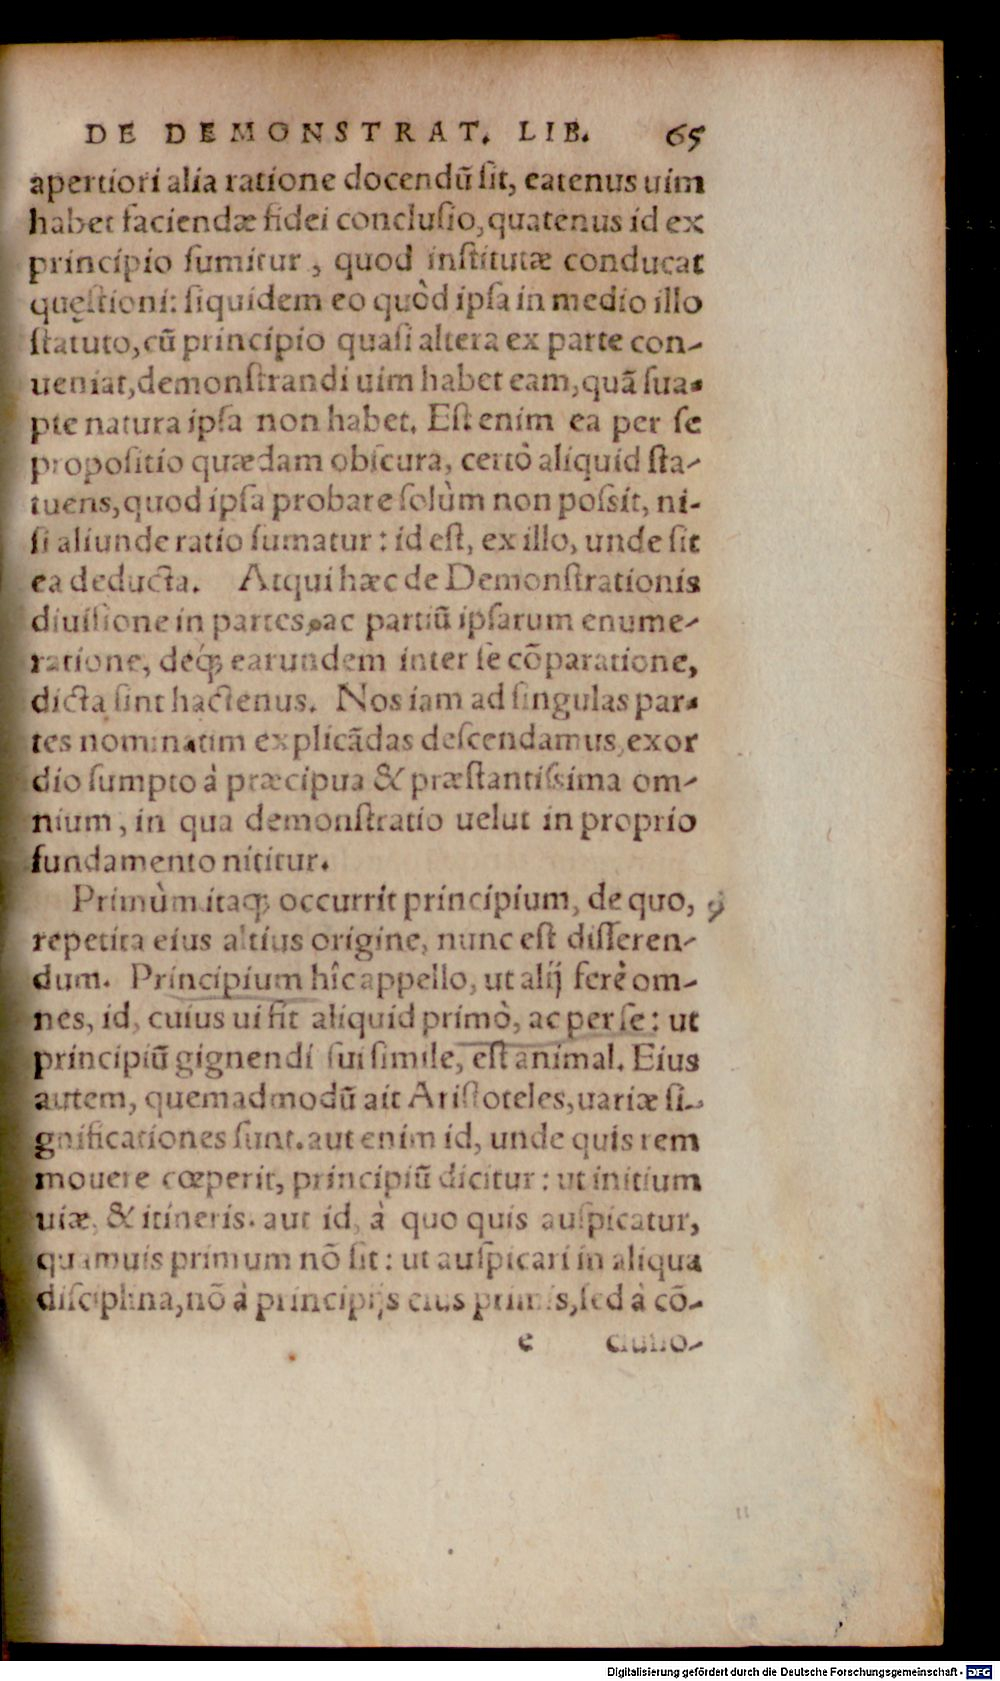 DE DEMONSTRAT. LIB. 65
apertiori alia ratione docendũ sit, eatenus uim
habet faciendæ fidei conclusio, quatenus id ex
principio sumitur, quod institutæ conducat
quęstioni: siquidem eo quòd ipsa in medio illo
statuto, cũ principio quasi altera ex parte con-
ueniat, demonstrandi uim habet eam, quã sua-
pte natura ipsa non habet. Est enim ea per se
propositio quædam obscura, certò aliquid sta-
tuens, quod ipsa probare solùm non possit, ni-
si aliunde ratio sumatur: id est, ex illo, unde sit
ea deducta. Atqui hæc de Demonstrationis
diuisione in partes, ac partiũ ipsarum enume-
ratione, deq́; earundem inter se cõparatione,
dicta sint hactenus. Nos iam ad singulas par-
tes nominatim explicãdas descendamus, exor
dio sumpto à præcipua & præstantissima om-
nium, in qua demonstratio uelut in proprio
fundamento nititur.
Primùm itaq; occurrit principium, de quo,
repetita eius altius origine, nunc est disseren-
dum. Principium hîc appello, ut alij ferè om-
nes, id, cuius ui fit aliquid primò, ac per se: ut
principiũ gignendi sui simile, est animal. Eius
autem, quemadmodũ ait Aristoteles, uariæ si-
gnificationes sunt. aut enim id, unde quis rem
mouere cœperit, principiũ dicitur: ut initium
uiæ, & itineris. aut id, à quo quis auspicatur,
quamuis primum nõ sit: ut auspicari in aliqua
disciplina, nõ à principijs eius primis, sed à cõ-
e
Digitalisierung gefördert durch die Deutsche Forschungsgemeinschaft - DFG